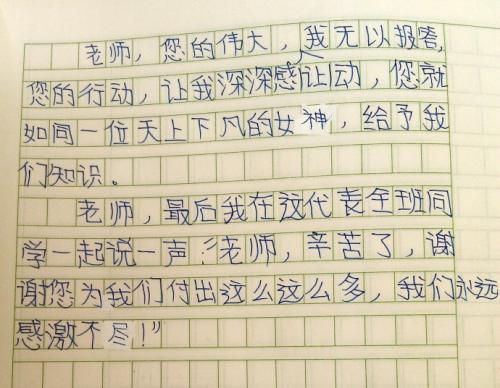 老师，您的伟大，我无以报答，
您的行动，让我深深感让动，您就
如同一位天上下凡的女神，给予我
们知识。
老师，最后我在这代表全班同
学一起说一声：“老师，辛苦了，谢
谢您为我们付出这么这么多，我们永远
感激不尽！”